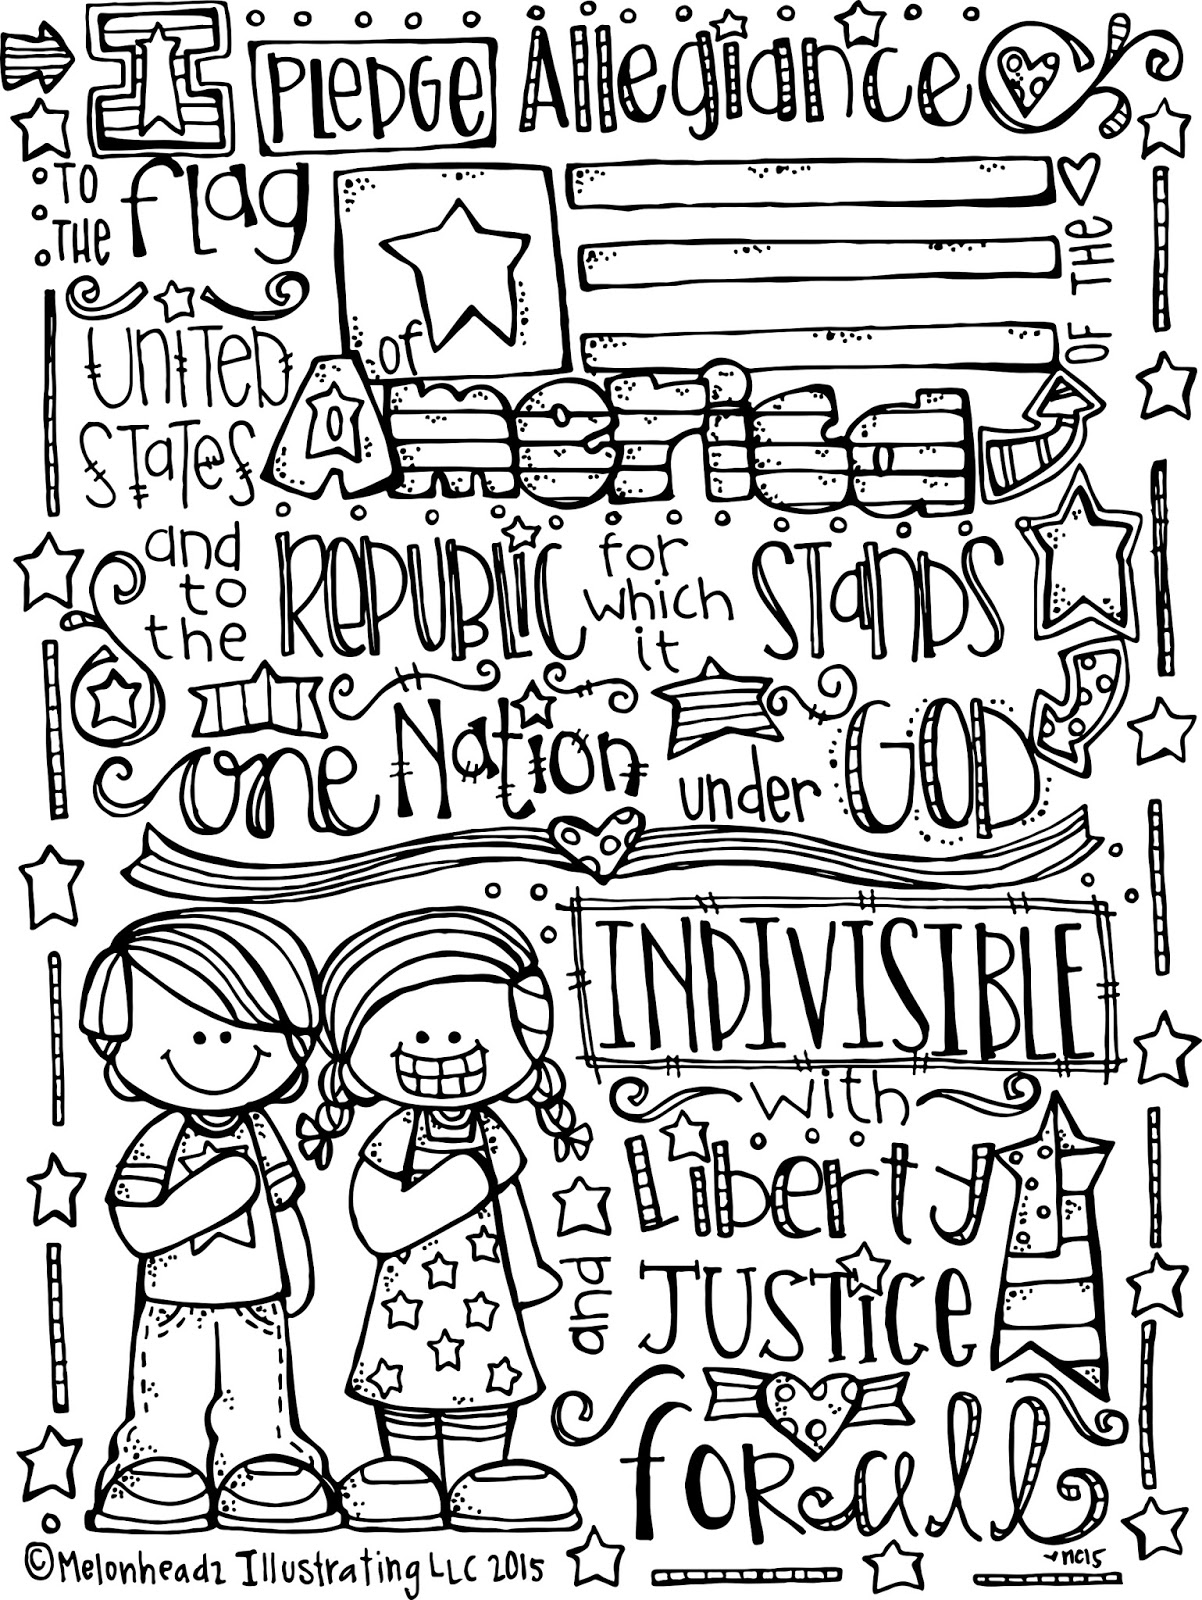 I PLEDGE Allegiance
TO THE flag
OF THE
UNITED
STATES
of America
and to the REPUBLIC for which it STANDS
one Nation under GOD
INDIVISIBLE
with
Liberty
and JUSTICE
for all
©Melonheadz Illustrating LLC 2015
NC15